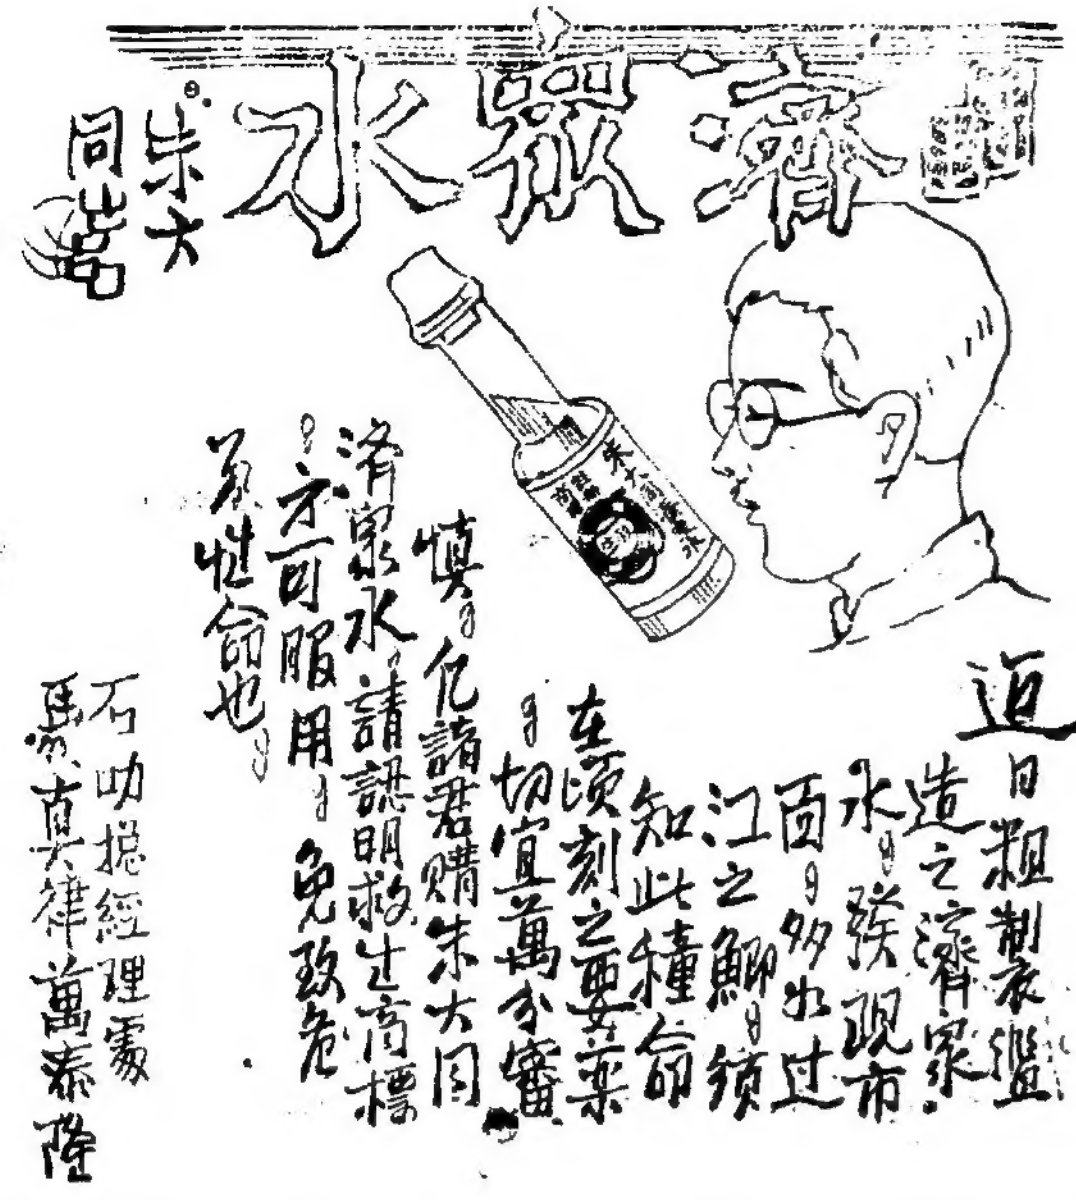 濟眾水
朱大
同
朱大同濟衆水
近日粗製濫
造之濟衆
水。發現市
面。多如过
江之鯽。須
知此種命
在頃刻之要藥
。切宜萬分審
慎。凡諸君購朱大同
濟衆水。請認明救生商標
。方可服用。免致危
及性命也。
石叻總經理處
馬真律萬泰隆